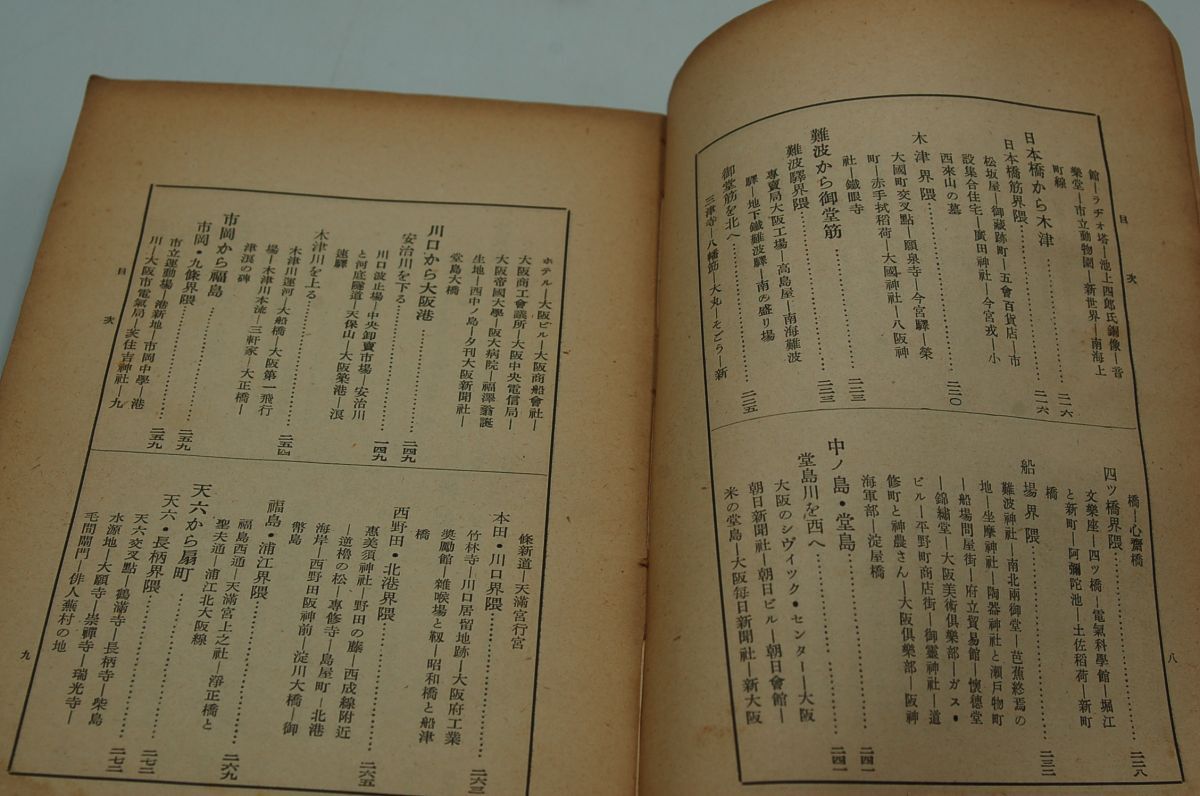 目次
館―ラヂォ塔―池上四郎氏銅像―音
樂堂―市立動物園―新世界―南海上
町線……二一六
日本橋から木津
日本橋筋界隈……二一六
松坂屋―御藏跡町―五會百貨店―市
設集合住宅―廣田神社―今宮戎―小
西來山の墓
木津界隈……二二〇
大國町交叉點―願泉寺―今宮驛―榮
町―赤手拭稻荷―大國神社―八阪神
社―鐵眼寺
難波から御堂筋……二二三
難波驛界隈……二二三
專賣局大阪工場―高島屋―南海難波
驛―地下鐵難波驛―南の盛り場
御堂筋を北へ……二二五
三津寺―八幡筋―大丸―そごう―新
橋―心齋橋
四ツ橋界隈……二二八
文樂座―四ツ橋―電氣科學館―堀江
と新町―阿彌陀池―土佐稻荷―新町
橋
船場界隈……二三二
難波神社―南北兩御堂―芭蕉終焉の
地―坐摩神社―陶器神社と瀨戸物町
―船場問屋街―府立貿易館―懷德堂
―錦繡堂―大阪美術俱樂部―ガス・
ビル―平野町商店街―御靈神社―道
修町と神農さん―大阪俱樂部―阪神
海軍部―淀屋橋
中ノ島・堂島……二四一
堂島川を西へ……二四一
大阪のシヴィック・センター―大阪
朝日新聞社―朝日ビル―朝日會館―
米の堂島―大阪每日新聞社―新大阪
八
ホテル―大阪ビル―大阪商船會社―
大阪商工會議所―大阪中央電信局―
大阪帝國大學―阪大病院―福澤翁誕
生地―西中ノ島―夕刊大阪新聞社―
堂島大橋
川口から大阪港……二四九
安治川を下る……二四九
川口波止場―中央卸賣市場―安治川
と河底隧道―天保山―大阪築港―浪
速驛
木津川を上る……二五四
木津川運河―大船橋―大阪第一飛行
場―木津川本流―三軒家―大正橋―
津浪の碑
市岡から福島……二五九
市岡・九條界隈……二五九
市立運動場―港新地―市岡中學―港
川―大阪市電氣局―茨住吉神社―九
目次
條新道―天滿宮行宮
本田・川口界隈……二六三
竹林寺―川口居留地跡―大阪府工業
奬勵館―雜喉場と靱―昭和橋と船津
橋
西野田・北港界隈……二六五
惠美須神社―野田の藤―西成線附近
―逆櫓の松―專修寺―島屋町―北港
海岸―西野田阪神前―淀川大橋―御
幣島
福島・浦江界隈……二六九
福島西通―天滿宮上之社―淨正橋と
聖天通―浦江北大阪線
天六から扇町……二七二
天六・長柄界隈……二七二
天六交叉點―鶴滿寺―長柄寺―柴島
水源地―大願寺―崇禪寺―瑞光寺―
毛馬閘門―俳人蕪村の地
九